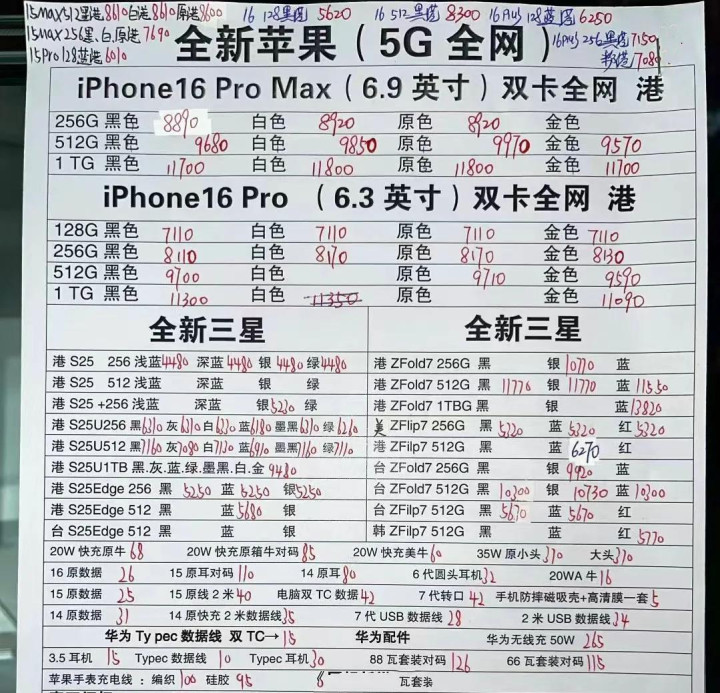 15max512黑港8610白港8610原港8600 16 128黑港5620 16 512黑港8300 16Plus 128蓝港6250
15max256黑、白、原港7690 16Plus 256黑港7150
15Pro128蓝港6010 港7080
全新苹果(5G 全网)
iPhone16 Pro Max(6.9 英寸)双卡全网 港
256G 黑色 8890 白色 8920 原色 8920 金色
512G 黑色 9680 白色 9850 原色 9970 金色 9570
1 TG 黑色 11700 白色 11800 原色 11800 金色 11700
iPhone16 Pro (6.3 英寸)双卡全网 港
128G 黑色 7110 白色 7110 原色 7110 金色 7110
256G 黑色 8110 白色 8170 原色 8170 金色 8130
512G 黑色 9700 白色 原色 9710 金色 9590
1 TG 黑色 11300 白色 11350 原色 金色 11090
全新三星 全新三星
港 S25 256 浅蓝4480 深蓝4480 银4480 绿4480 港 ZFold7 256G 黑 银10770 蓝
港 S25 512 浅蓝 深蓝 银 绿 港 ZFold7 512G 黑 11770 银11770 蓝11550
港 S25 +256 浅蓝 深蓝 银5230 绿 港 ZFold7 1TBG 黑 银 蓝13820
港 S25U256 黑6310灰6310白6330蓝6180墨黑6310绿6210 美 ZFilp7 256G 黑 5320 蓝 5320 红5320
港 S25U512 黑7160灰7080白7130蓝6910墨黑7160绿7110 港 ZFilp7 512G 黑 蓝 6270 红
港 S25U1TB 黑.灰.蓝.绿.墨黑.白.金 9480 台 ZFold7 256G 黑 银 9920 蓝
港 S25Edge 256 黑 5250 蓝 5250 银5250 台 ZFold7 512G 黑 10300 银 10730 蓝 10300
港 S25Edge 512 黑 蓝 5680 银 台 ZFlip7 512G 黑 5670 蓝 5670 红
台 S25Edge 512 黑 蓝 银 韩 ZFilp7 512G 黑 蓝 红 5770
20W 快充原牛 68 20W 快充原箱牛对码 85 20W 快充美牛 60 35W 原小头 310 大头 310
16 原数据 26 15 原耳对码 110 14 原耳 80 6 代圆头耳机 32 20WA 牛 16
15 原数据 25 15 原线 2 米 40 电脑双 TC 数据 42 7 代转口 42 手机防摔磁吸壳+高清膜一套 5
14 原数据 31 14 原快充 2 米数据线 35 7 代 USB 数据线 28 2 米 USB 数据线 34
华为 Ty pec 数据线 双 TC→ 15 华为配件 华为无线充 50W 265
3.5 耳机 15 Typec 数据线 10 Typec 耳机 30 88 瓦套装对码 126 66 瓦套装对码 115
苹果手表充电线:编织 100 硅胶 95 8 瓦套装